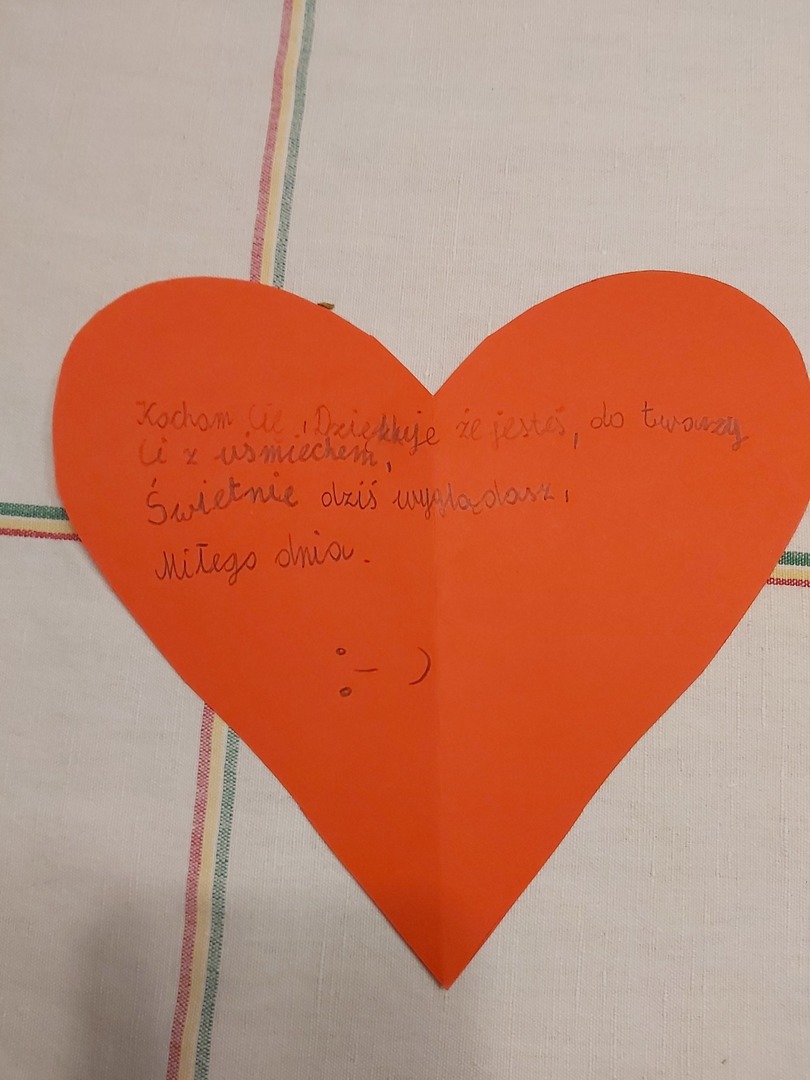 Kocham Cię, Dziękuje że jesteś, do twarzy
Ci z uśmiechem,
Świetnie dziś wyglądasz,
Miłego dnia.
:-)